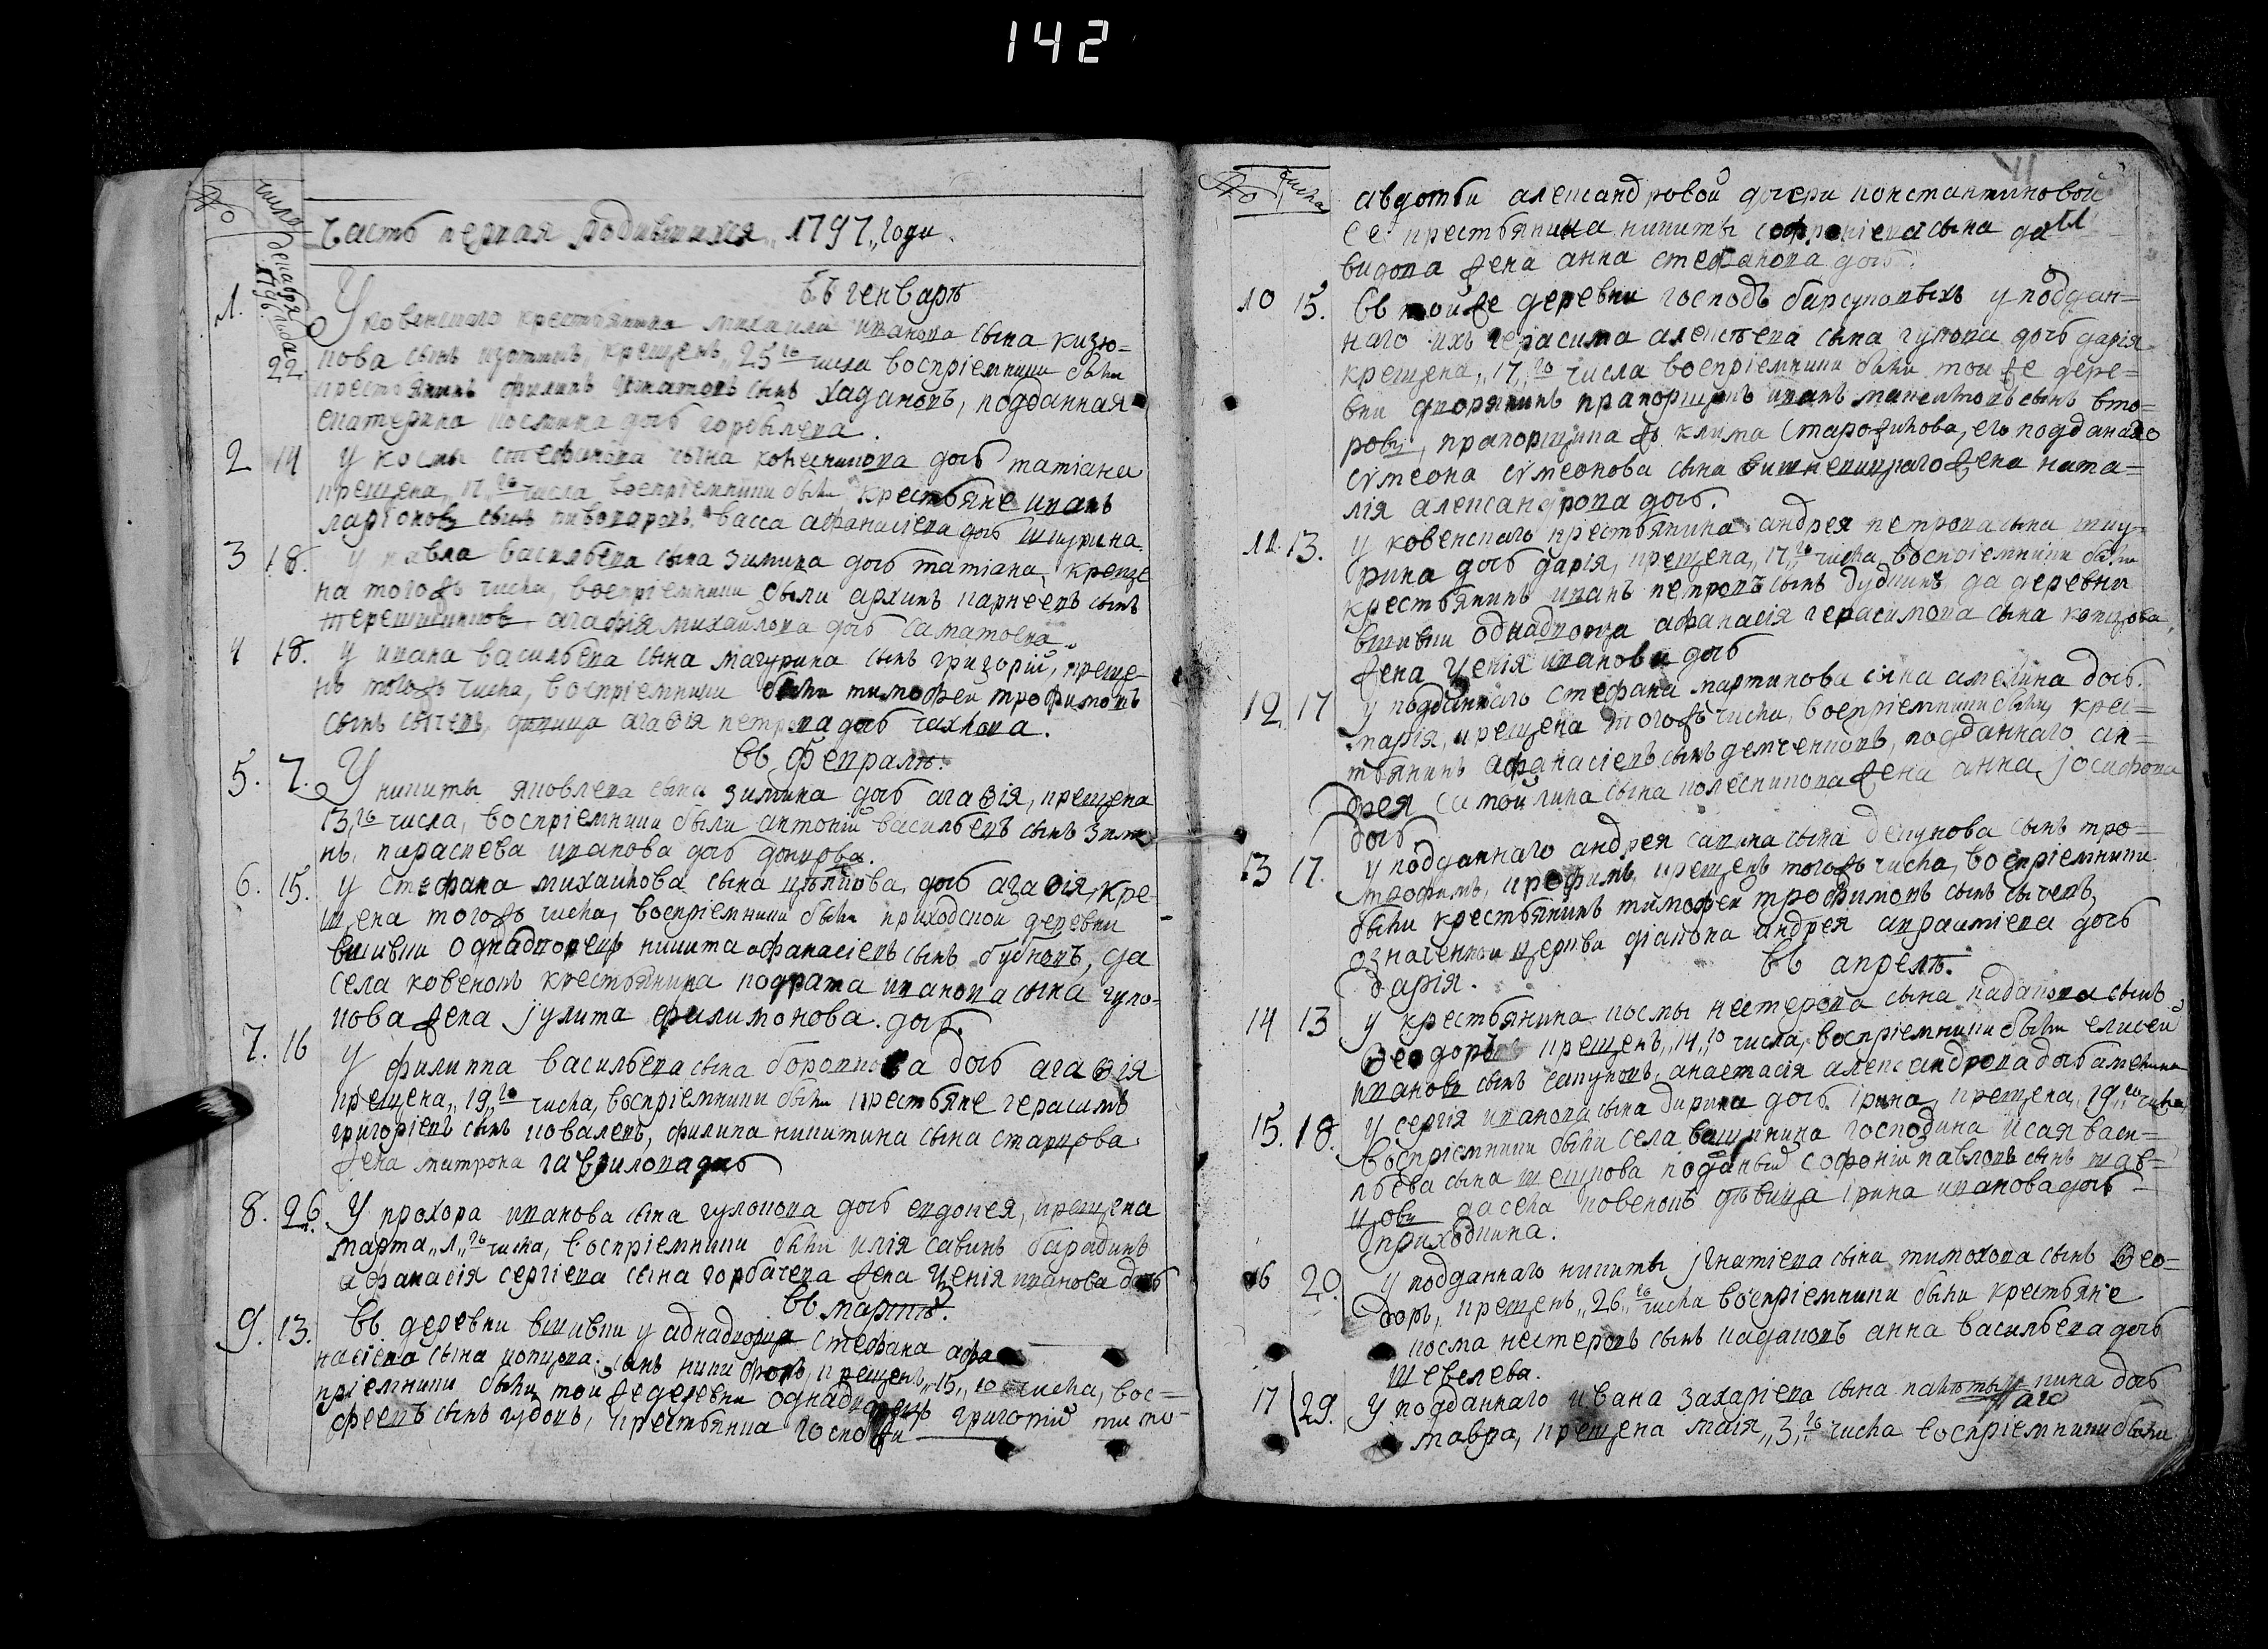 142
№ число
Часть первая родившихся „1797„ года.
декабря 1796 года
въ генварѣ
1. 22 У ковенскаго крестьянина михаила иванова сына кизю=
кова сынъ изотикъ, крещенъ „25го числа восприемники были
крестьянинъ филипъ игнатовъ сынъ хадановъ, подданная
екатерина космина дочь горбылева.
2 14 У космы стефанова сына колесникова дочь татиана
крещена „17„го числа восприемники были крестьяне иванъ
ларионовъ сынъ пивоваровъ, васса афанасиева дочь шшурина.
3 18. У павла васильева сына зимина дочь татиана, креще
на тогожъ числа, восприемники были архипъ карнеевъ сынъ
агафия михаилова дочь саматоена.
4 18. У ивана васильева сына мачурина сынъ григорий, креще-
нъ тогожъ числа, восприемники были тимофеи трофимовъ
сынъ сычевъ, девица агаѳия петрова дочь чахлова.
въ февралѣ.
5. 7. У никиты яковлева сына зимина дочь агаѳия, крещена
13,го числа, восприемники были антоний васильевъ сынъ зими
нъ, параскева иванова дочь донцова.
6. 15. У стефана михаилова сына цѣпкова, дочь агаѳия, кре-
щена тогожъ числа, восприемники были приходской деревни
вшивки однадворецъ никита афанасиевъ сынъ бубновъ, да
села ковенокъ крестьянина кодрата иванова сына гуло-
кова жена іулита филимонова дочь.
7. 16 У филиппа васильева сына боровкова дочь агаѳия
крещена, „19„го числа, восприемники были крестьяне герасимъ
григориевъ сынъ ковалевъ, филипа никитина сына старцова
жена матрона гаврилова дочь
8. 26. У прохора иванова сына гулокова дочь евдокея, крещена
марта „1„го числа, восприемники были илия савинъ барадинъ
афанасия сергиева сына горбачева жена ксения иванова дочь
въ мартѣ.
9. 13. Въ деревни вшивки у аднадворца стефана афа
насиева сына копцева. сынъ никифоръ, крещенъ „15„го числа, вос=
приемники были тои же деревни однадворецъ григорий тимо-
феевъ сынъ гудовъ, крестьянка госпожи
№ числа
авдотьи александровой дочери константиновой
ее крестьянина никиты софрониева сына да
видова жена анна стефанова дочь.
10 15. Въ тойже деревни господъ барсуковыхъ у поддан=
наго ихъ герасима алексеева сына гукова дочь дария
крещена, „17„го числа восприемники были тои же дере=
вни дворянинъ прапорщикъ иванъ макситовъ сынъ вто=
ровъ, прапорщика жъ клима старожикова, его подданаго
сѵмеона сѵмеонова сына вишневицкаго жена ната=
лия александрова дочь.
11. 13. У ковенскаго крестьянина андрея петрова сына шшу
рина дочь дария, крещена, „17„го числа восприемники были
крестьянинъ иванъ петровъ сынъ дудкинъ да деревни
вшивки однадворца афанасия герасимова сына копцова,
жена ксения иванова дочь
12 17 У подданнаго стефана мартинова сына амелина дочь.
мария, крещена тогожъ числа, восприемники были, крес=
тьянинъ афанасиевъ сынъ демченковъ, подданнаго ан=
дрея самойлина сына колесникова жена анна іосифова
дочь
13 17. У подданнаго андрея савина сына декунова сынъ тро=
трофимъ, крещенъ тогожъ числа, восприемники
были крестьянинъ тимофеи трофимовъ сынъ сычевъ,
означеннои церкви диакона андрея авраамиева дочь
дария.
въ апрелѣ.
14 13 У крестьянина космы нестерова сына кадацкова сынъ
ѳеодоръ крещенъ, „14„го числа, восприемники были елисей
ивановъ сынъ сапуновъ, анастасия александрова дочь амелина
15. 18. У сергия иванова сына бирина дочь. ирина, крещена, 19„го числа
восприемники были села ващинина господина исая васи=
льева сына шешкова поданый софоний павловъ сынъ шав=
цовъ да села ковенокъ дѣвица ирина иванова дочь
приходкина.
16 20. У подданнаго никиты игнатиева сына тимохова сынъ ѳео=
доръ, крещенъ, „26„го числа восприемники были крестьяне
косма нестеровъ сынъ кадацковъ анна васильева дочь
шевелева.
17 29. У подданнаго ивана захариева сына дочь
мавра, крещена маия „3„го числа восприемники были